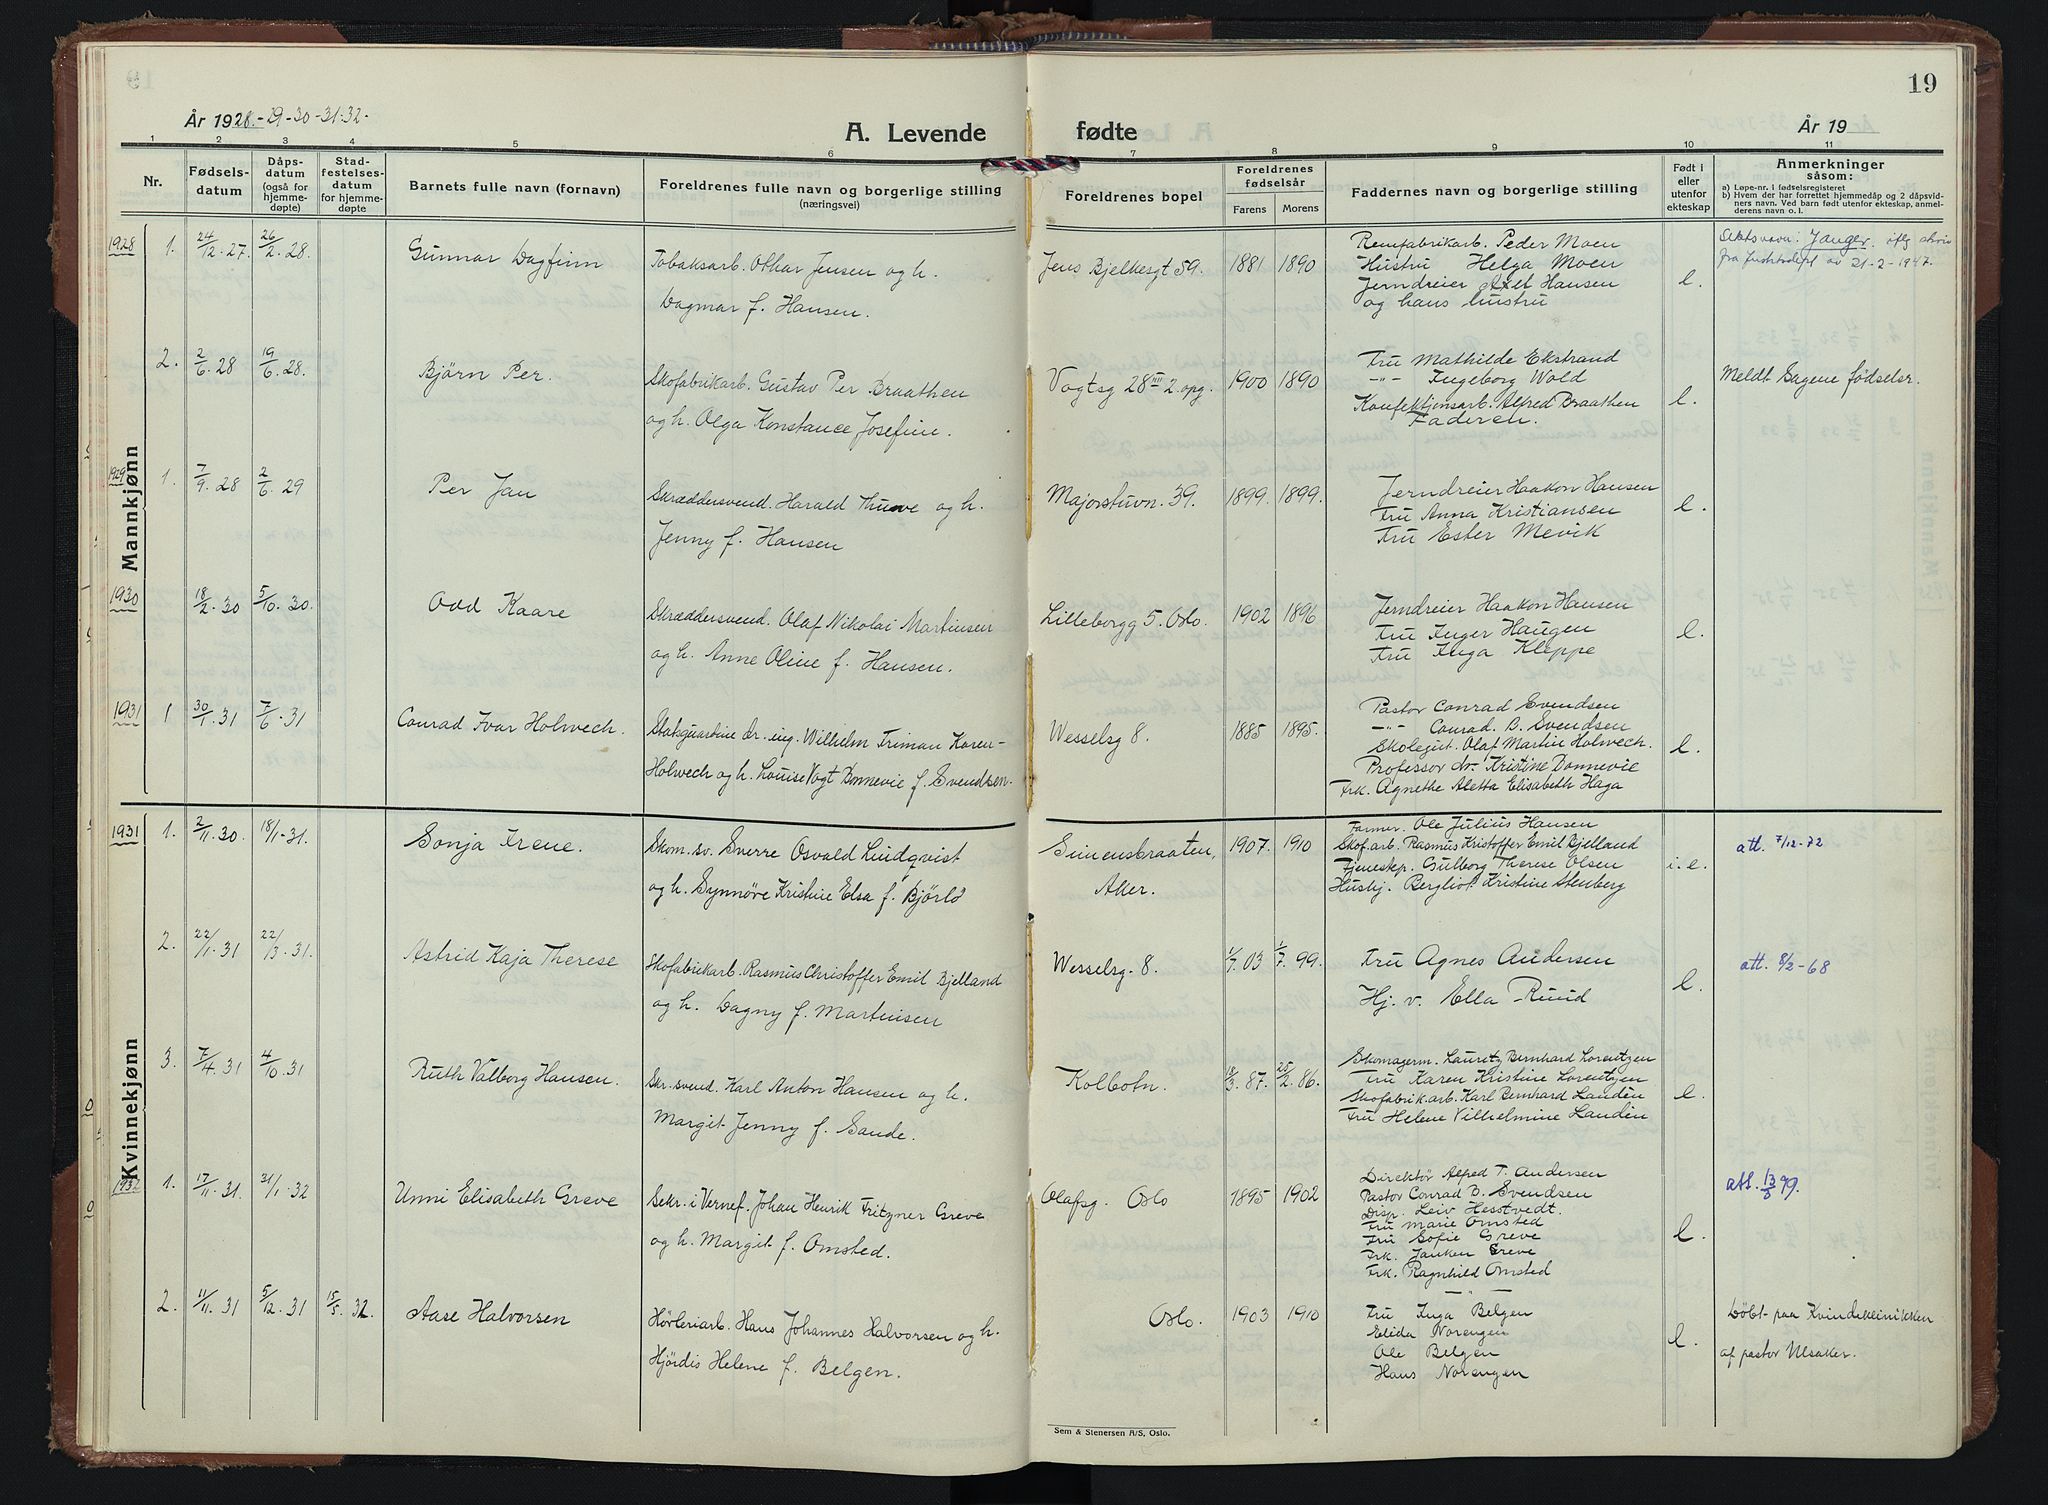 19
År 1928-29-30-31-32.
A. Levende fødte
År 19
1 2 3 4 5 6 7 8 9 10 11
Nr.
Fødsels-
datum
Dåps-
datum
(også for
hjemme-
døpte)
Stad-
festelses-
datum
for hjemme-
døpte
Barnets fulle navn (fornavn)
Foreldrenes fulle navn og borgerlige stilling
(næringsvei)
Foreldrenes bopel
Foreldrenes
fødselsår
Farens Morens
Faddernes navn og borgerlige stilling
Født i
eller
utenfor
ekteskap
Anmerkninger
såsom:
a) Løpe-nr. i fødselsregisteret
b) Hvem der har forrettet hjemmedåp og 2 dåpsvid-
ners navn. Ved barn født utenfor ekteskap, anmel-
derens navn o. l.
Mannkjønn
1928 1. 24/12. 27. 26/2. 28. Gunnar Dagfinn
Tobaksarb. Othar Jensen og h.
Dagmar f. Hansen.
Jens Bjelkesgt 59. 1881 1890
Remfabrikarb. Peder Moen
Hustru Helga Moen
Jerndreier Axel Hansen
og hans hustru
l.
Slektsnavn: Janger, iflg skriv
fra av 21-2-1947.
2. 2/6. 28 19/6. 28. Bjørn Per.
Skofabrikarb. Gustav Per Braathen
og h. Olga Konstance Josefine.
Vogtsg 28 III 2. opg. 1900 1890
Fru Mathilde Ekstrand
-"- Ingeborg Wold
Konfektjonsarb. Alfred Braathen
Faderen.
l.
Meldt Sagene fødselsr.
1929 1. 7/9. 28 2/6. 29 Per Jan
Skræddersvend. Harald Thuve og h.
Jenny f. Hansen
Majorstuvn. 39. 1899. 1899.
Jerndreier Haakon Hansen
Fru Anna Kristiansen
Fru Ester Mevik
l.
1930 18/2. 30 5/10. 30. Odd Kaare
Skræddersvend. Olaf Nikolai Martinsen
og h. Anne Oline f. Hansen.
Lilleborgg 5. Oslo. 1902 1896
Jerndreier Haakon Hansen
Fru Inger Haugen
Fru Inga Kleppe
l.
1931 1 30/1. 31 7/6. 31 Conrad Ivar Holwech.
dr. ing. Wilhelm Friman Koren-
Holwech og h. Louise Vogt Bonnevie f. Svendsen.
Wesselsg 8. 1885 1895.
Pastor Conrad Svendsen
-"- Conrad. B. Svendsen
Skolegut. Olaf Martin Holwech.
Professor dr. Kristine Bonnevie
Frk. Agnethe Aletta Elisabeth Haga
l.
Kvinnekjønn
1931 1. 2/11. 30. 18/1-31. Sonja Irene.
Skom. sv. Sverre Osvald Lindqvist
og h. Synnøve Kristine Elsa f. Bjørlo
Simensbraaten,
Aker.
1907. 1910
Farmer. Ole Julius Hansen
Skof.arb. Rasmus Kristoffer Emil Bjelland
Tjeneskp. Gulborg Therese Olsen
Hushj. Bergliot Kristine Stenberg
i. e.
att. 7/12-72
2. 22/1. 31 22/3. 31 Astrid Kaja Therese
Skofabrikarb. Rasmus Christoffer Emil Bjelland
og h. Dagny f. Martinsen
Wesselsg. 8. 1/7. 03 1/7. 99.
Fru Agnes Andersen
Hj. v. Ella Ruud
l.
att. 8/2-68
3. 7/4. 31 4/10. 31 Ruth Valborg Hansen.
Skr. svend. Karl Anton Hansen og h.
Margit Jenny f. Sande.
Kolbotn. 18/3. 87. 25/2. 86.
Skomagerm. Lauretz Bernhard Lorentzen
Fru Karen Kristine Lorentzen
Skofabrik.arb. Karl Bernhard Landèn
Fru Helene Vilhelmine Landèn
l.
1932 1. 17/11. 31. 31/1. 32 Unni Elisabeth Greve
Sekr. i Vernef. Johan Henrik Fritzner Greve
og h. Margit f. Omsted.
Olafsg. Oslo 1895 1902
Direktør Alfred T. Andersen
Pastor Conrad B. Svendsen
Disp. Leiv Hesstvedt.
Fru Marie Omsted
Fru Sofie Greve
Frk. Janken Greve
Frk. Ragnhild Omsted
l.
att. 13/8 99.
2. 11/11. 31 5/12. 31 15/5. 32. Aase Halvorsen
Høvleriarb. Hans Johannes Halvorsen og h.
Hjørdis Helene f. Belgen.
Oslo. 1903 1910
Fru Inga Belgen
Elida Norengen
Ole Belgen
Hans Norengen
l.
Døbt paa Kvindeklinikken
af pastor Ulsaker.
Sem & Stenersen A/S, Oslo.